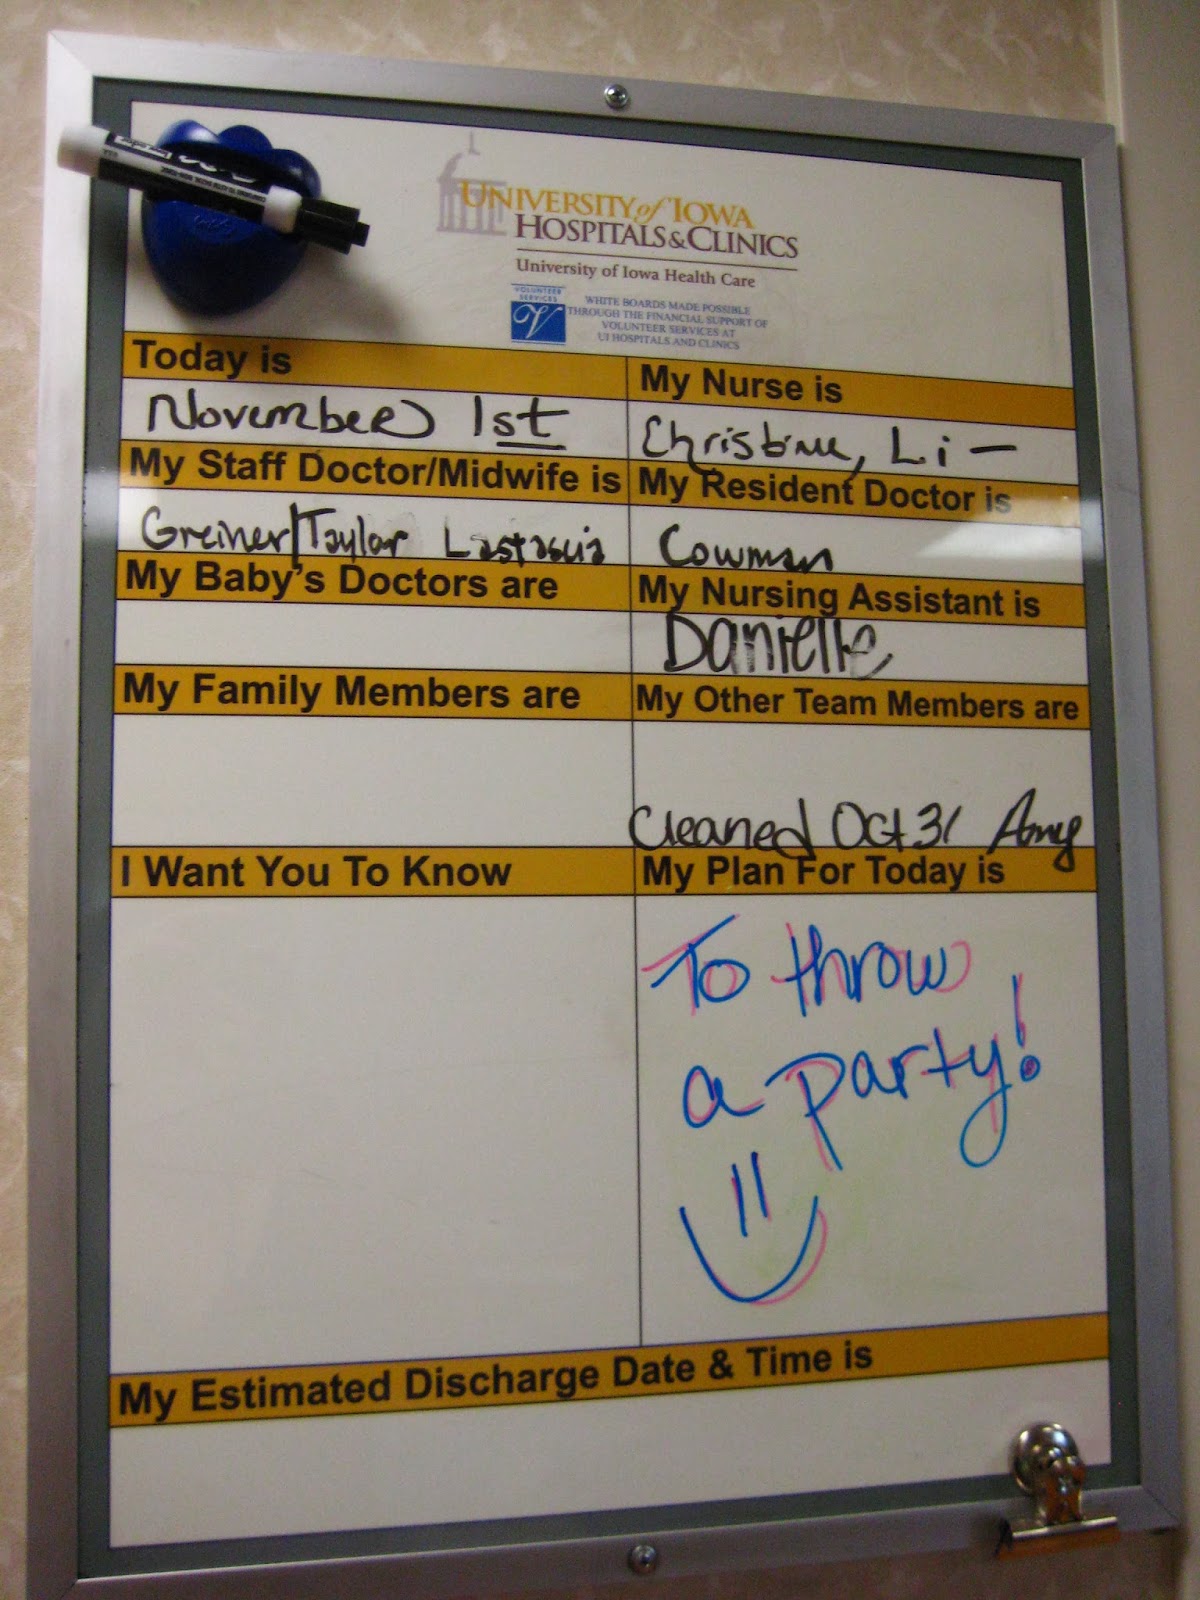 UNIVERSITY of IOWA
HOSPITALS & CLINICS
University of Iowa Health Care
VOLUNTEER
SERVICES
V
WHITE BOARDS MADE POSSIBLE
THROUGH THE FINANCIAL SUPPORT OF
VOLUNTEER SERVICES AT
UI HOSPITALS AND CLINICS
Today is
November 1st
My Nurse is
Christine, Li -
My Staff Doctor/Midwife is
Greiner/Taylor
My Resident Doctor is
Cowman
My Baby's Doctors are
My Nursing Assistant is
Danielle
My Family Members are
My Other Team Members are
Cleaned Oct 31 Amy
I Want You To Know
My Plan For Today is
To throw
a party!
My Estimated Discharge Date & Time is